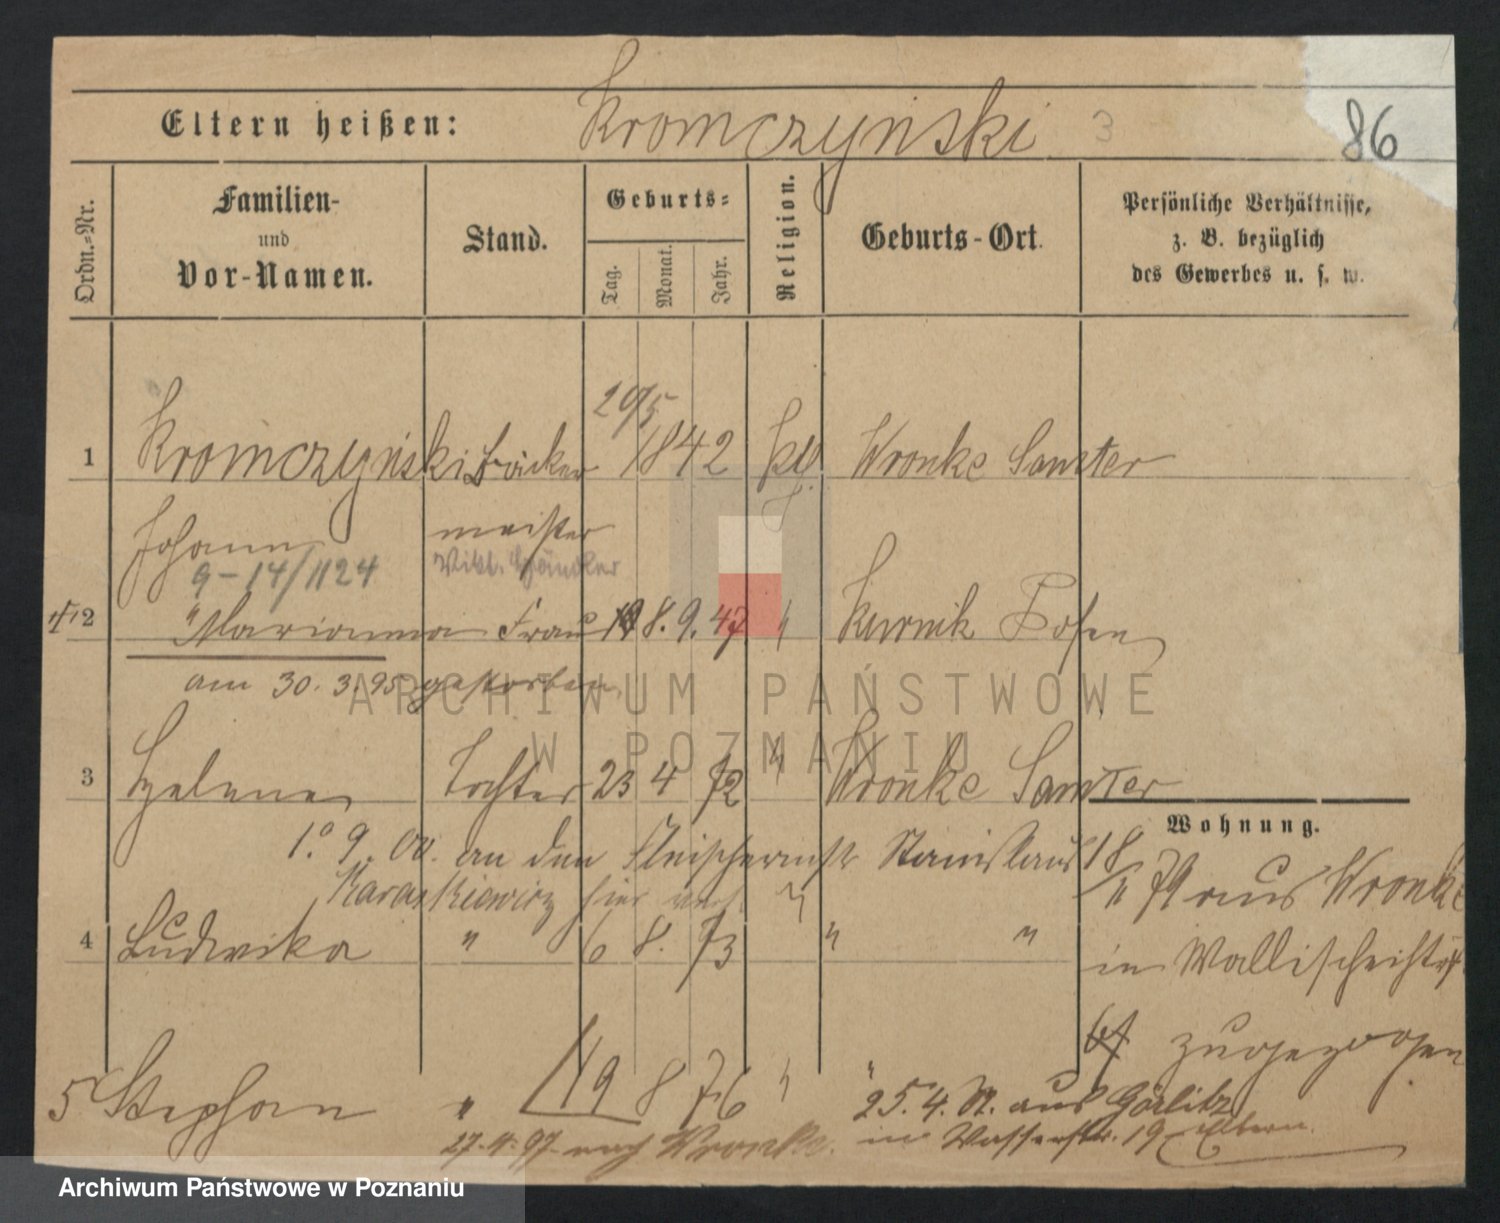 Eltern heißen: Kromczyński 3
86
Ordn.-Nr.
Familien-
und
Vor-Namen.
Stand.
Geburts-
Tag. Monat. Jahr.
Religion.
Geburts-Ort.
Persönliche Verhältnisse,
z. B. bezüglich
des Gewerbes u. s. w.
29/5
1 Kromczyński Bäcker 1842 kth Wronke Samter
Johann meister
9-14/1124 Vikt. Händler
2 Marianna Frau 8. 9. 47 " Kurnik Posen
am 30. 3. 95 gestorben
3 Helena Tochter 23 4 72 " Wronke Samter
Wohnung.
1. 9. 00. an den Fleischermstr Stanislaus
Karaskiewicz hier verh
18/11 79 aus Wronke
4 Ludwika " 6 8. 73 " "
in Wallischeistr
zugezogen
5 Stephan " 19 8 76 " "
25. 4. aus Görlitz
27. 4. 97. nach Wronke.
in Wasserstr. 19 Eltern.
ARCHIWUM PAŃSTWOWE
W POZNANIU
Archiwum Państwowe w Poznaniu